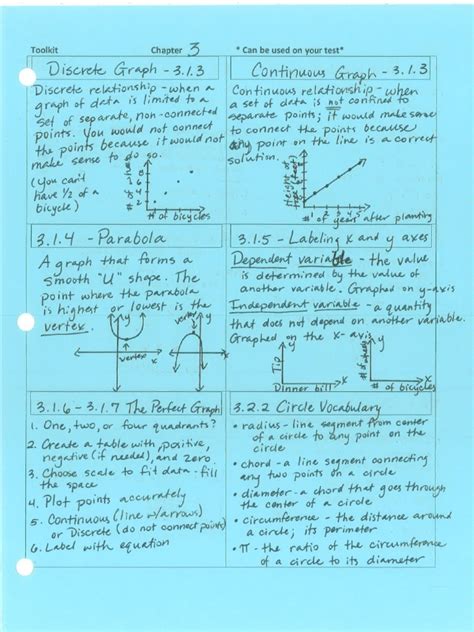 Toolkit Chapter 3 * Can be used on your test*
Discrete Graph - 3.1.3
Discrete relationship - when a
graph of data is limited to a
set of separate, non-connected
points. You would not connect
the points because it would not
make sense to do so.
(You can't
have ½ of a
bicycle)
8
6
4
2
# of bicycles
Continuous Graph - 3.1.3
Continuous relationship - when
a set of data is not confined to
separate points; it would make sense
to connect the points because
any point on the line is a correct
solution.
Height of
1 2 3 4 5 6
# of years after planting
3.1.4 - Parabola
A graph that forms a
smooth "U" shape. The
point where the parabola
is highest or lowest is the
vertex.
y
vertex
x
vertex
y
x
3.1.5 - Labeling x and y axes
Dependent variable - the value
is determined by the value of
another variable. Graphed on y-axis
Independent variable - a quantity
that does not depend on another variable.
Graphed on the x-axis
y
Tip
Dinner bill
x
y
# of wheels
# of bicycles
x
3.1.6 - 3.1.7 The Perfect Graph
1. One, two, or four quadrants?
2. Create a table with positive,
negative (if needed), and zero.
3. Choose scale to fit data - fill
the space
4. Plot points accurately
5. Continuous (line w/arrows)
or Discrete (do not connect points)
6. Label with equation
3.2.2 Circle Vocabulary
• radius - line segment from center
of a circle to any point on the
circle
• chord - a line segment connecting
any two points on a circle
• diameter - a chord that goes through
the center of a circle
• circumference - the distance around
a circle; its perimeter
• π - the ratio of the circumference
of a circle to its diameter